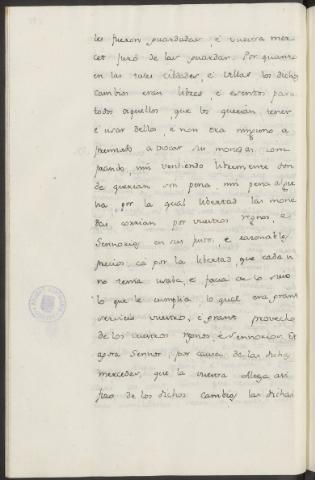 les fueron guardadas, e vuestra mer
cet juró de las guardar. Por quanto
en las tales cibdades, e villas los dichos
cambios eran libres, e esentos para
todos aquellos, que los querian tener
e usar dellos, e non era ninguno a
premiado a trocar su moneda com
prando, nin vendiendo libremente don
de querian sin pena, nin pena algu
na, por la qual libertad las mone
das corrian por vuestros regnos, e
Sennorios en su justo, e rasonable
precio, ca por la libertad, que cada u
no tenia usaba, e facia en lo suyo
lo que le cumplia, lo qual era grant
servicio vuestro, e grant provecho
de los vuestros regnos, e Sennorios. Et
agora Sennor, por causa de las dichas
mercedes, que la vuestra Altesa asi
fiso de los dichos cambios las dichas